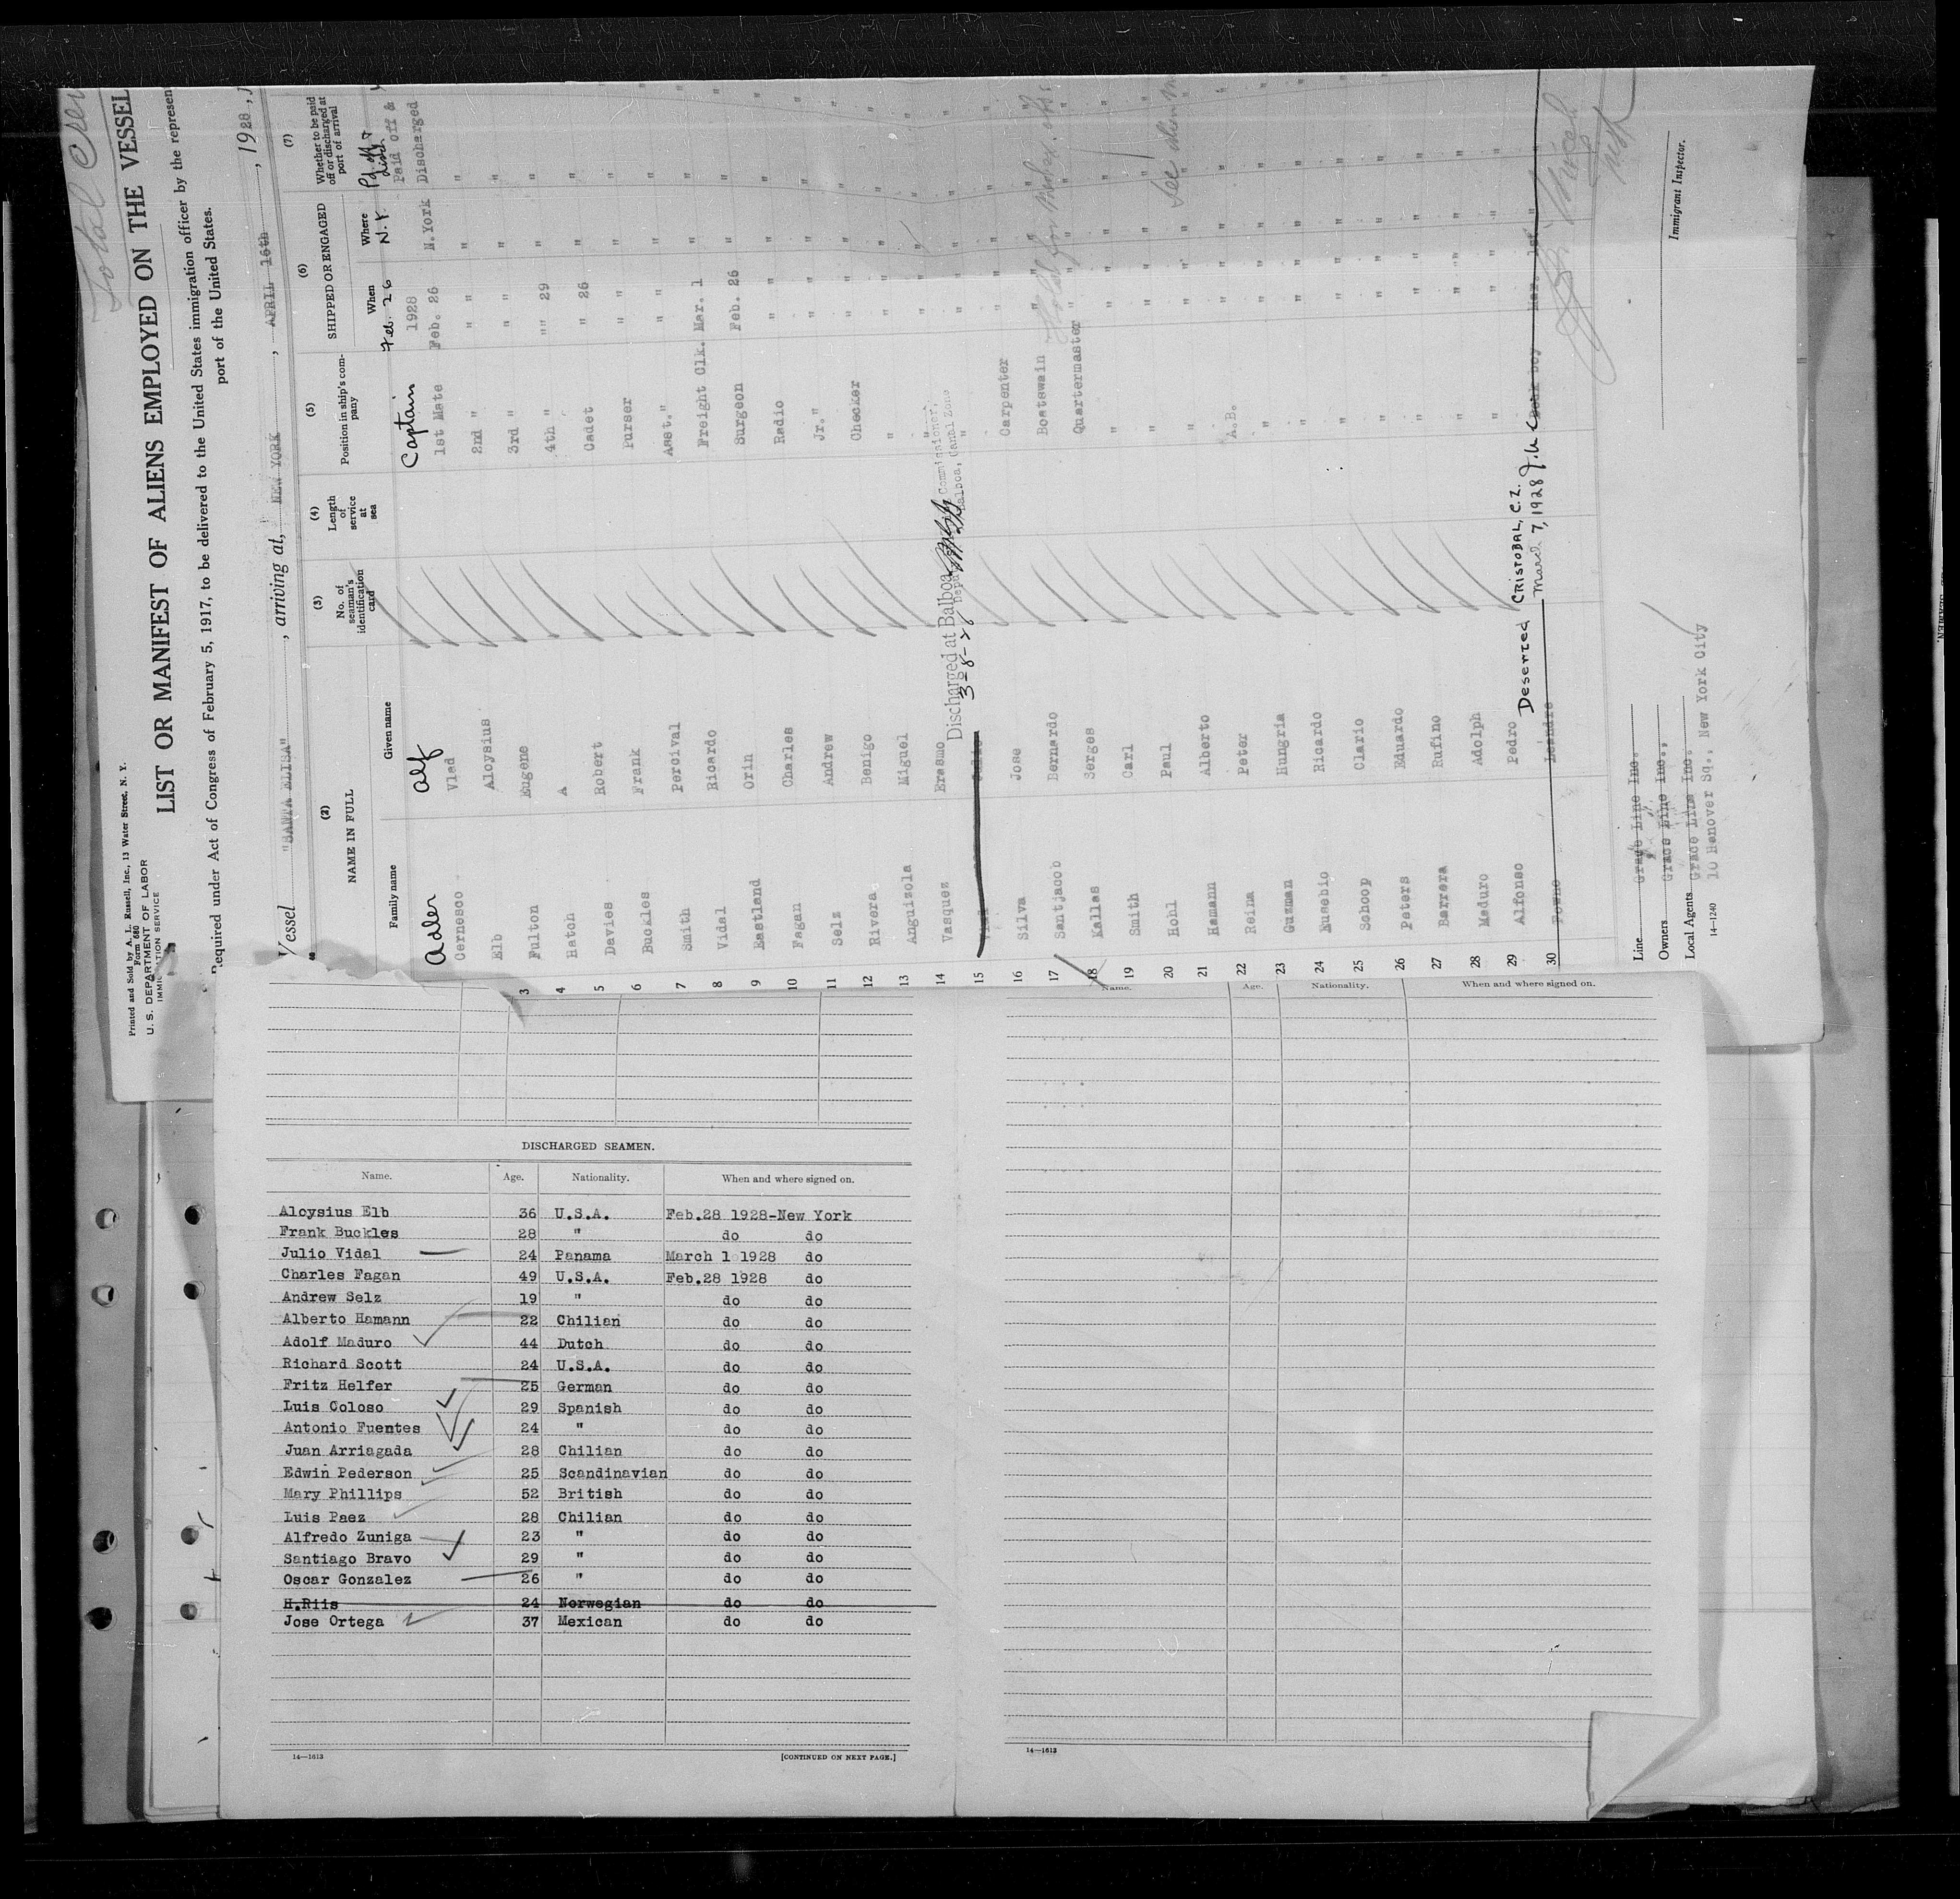 Total Crew
Printed and Sold by A. L. Russell, Inc., 13 Water Street, N. Y.
Form 680
U. S. DEPARTMENT OF LABOR
IMMIGRATION SERVICE
LIST OR MANIFEST OF ALIENS EMPLOYED ON THE VESSEL
Required under Act of Congress of February 5, 1917, to be delivered to the United States immigration officer by the represen
port of the United States.
Vessel "SANTA ELISA", arriving at, NEW YORK, APRIL 16th, 1928,
(2) NAME IN FULL (3) No. of seaman's identification card (4) Length of service at sea (5) Position in ship's company (6) SHIPPED OR ENGAGED (7) Whether to be paid off or discharged at port of arrival
Family name Given name When Where
Adler Alf Captain Feb. 26 N.Y. Pd off & disch
1928 Paid Off &
Cernesco Vlad 1st Mate Feb. 26 N.York Discharged
Elb Aloysius 2nd " " " " "
3 Fulton Eugene 3rd " " " " "
4 Hatch A 4th " "" 29 " "
5 Davies Robert Cadet " 26 " "
6 Buckles Frank Purser " " " "
7 Smith Percival Asst." " " " "
8 Vidal Ricardo Freight Clk. Mar. 1 " "
9 Eastland Orin Surgeon Feb. 26 " "
10 Fagan Charles Radio " " " "
11 Selz Andrew Jr." " " " "
12 Rivera Benigo Checker " " " "
13 Anguizola Miguel " " " " "
14 Vasquez Erasmo " " " " "
15 Vidal Julio Discharged at Balboa 3-8-28 "
Deputy Shipping Commissioner, Balboa, Canal Zone
16 Silva Jose Carpenter " " " "
17 Santjacob Bernardo Boatswain " " " "
18 Kallas Serges Quartermaster " " " "
19 Smith Carl " " " " "
20 Hohl Paul " " " " "
21 Hamann Alberto " " " " "
22 Reina Peter A.B. " " " "
23 Guzman Hungria " " " " "
24 Eusebio Ricardo " " " " "
25 Schoop Clario " " " " "
26 Peters Eduardo " " " " "
27 Barrera Rufino " " " " "
28 Maduro Adolph " " " " "
29 Alfonso Pedro " " " " "
30 Deserted CRISTOBAL, C.Z. March 7, 1928 Mar. 1st "
Line Grace Line Inc.
Owners Grace Line Inc.,
Local Agents Grace Line Inc.
10 Hanover Sq., New York City
14-1240
Immigrant Inspector.
DISCHARGED SEAMEN.
Name. Age. Nationality. When and where signed on.
Aloysius Elb 36 U.S.A. Feb.28 1928-New York
Frank Buckles 28 " do do
Julio Vidal 24 Panama March 1 1928 do
Charles Fagan 49 U.S.A. Feb.28 1928 do
Andrew Selz 19 " do do
Alberto Hamann 22 Chilian do do
Adolf Maduro 44 Dutch do do
Richard Scott 24 U.S.A. do do
Fritz Helfer 25 German do do
Luis Coloso 29 Spanish do do
Antonio Fuentes 24 " do do
Juan Arriagada 28 Chilian do do
Edwin Pederson 25 Scandinavian do do
Mary Phillips 52 British do do
Luis Paez 28 Chilian do do
Alfredo Zuniga 23 " do do
Santiago Bravo 29 " do do
Oscar Gonzalez 26 " do do
H.Riis 24 Norwegian do do
Jose Ortega 37 Mexican do do
14—1613
[CONTINUED ON NEXT PAGE.]
Name. Age. Nationality. When and where signed on.
14—1613